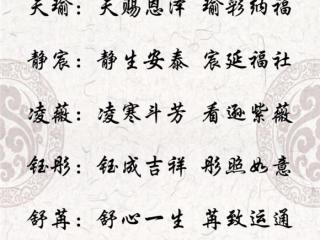 天瑜：天赐恩泽 瑜彩纳福
静宸：静生安泰 宸延福社
凌薇：凌寒斗芳 看逊紫薇
钰彤：钰成吉祥 彤照如意
舒苒：舒心一生 苒致运通